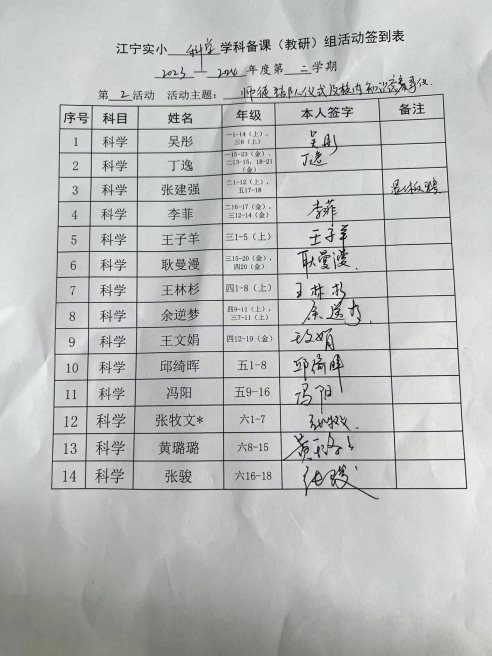 江宁实小 科学 学科备课（教研）组活动签到表
2023 — 2024 年度第 二 学期
第 2 活动 活动主题： 师徒结队仪式及校内
序号 科目 姓名 年级 本人签字 备注
1 科学 吴彤 一1-14（上），三6（上） 吴彤
2 科学 丁逸 一15-23（金），二13-15、18-21（金） 丁逸
3 科学 张建强 二1-12（上），五17-18
4 科学 李菲 二16-17（金），三12-14（金） 李菲
5 科学 王子羊 三1-5（上） 王子羊
6 科学 耿曼漫 三15-20（金），四20（金） 耿曼漫
7 科学 王林杉 四1-8（上） 王林杉
8 科学 余逆梦 四9-11（上），三7-11（上） 余逆梦
9 科学 王文娟 四12-19（金） 王文娟
10 科学 邱绮晖 五1-8 邱绮晖
11 科学 冯阳 五9-16 冯阳
12 科学 张牧文* 六1-7 张牧文
13 科学 黄璐璐 六8-15 黄璐璐
14 科学 张骏 六16-18 张骏